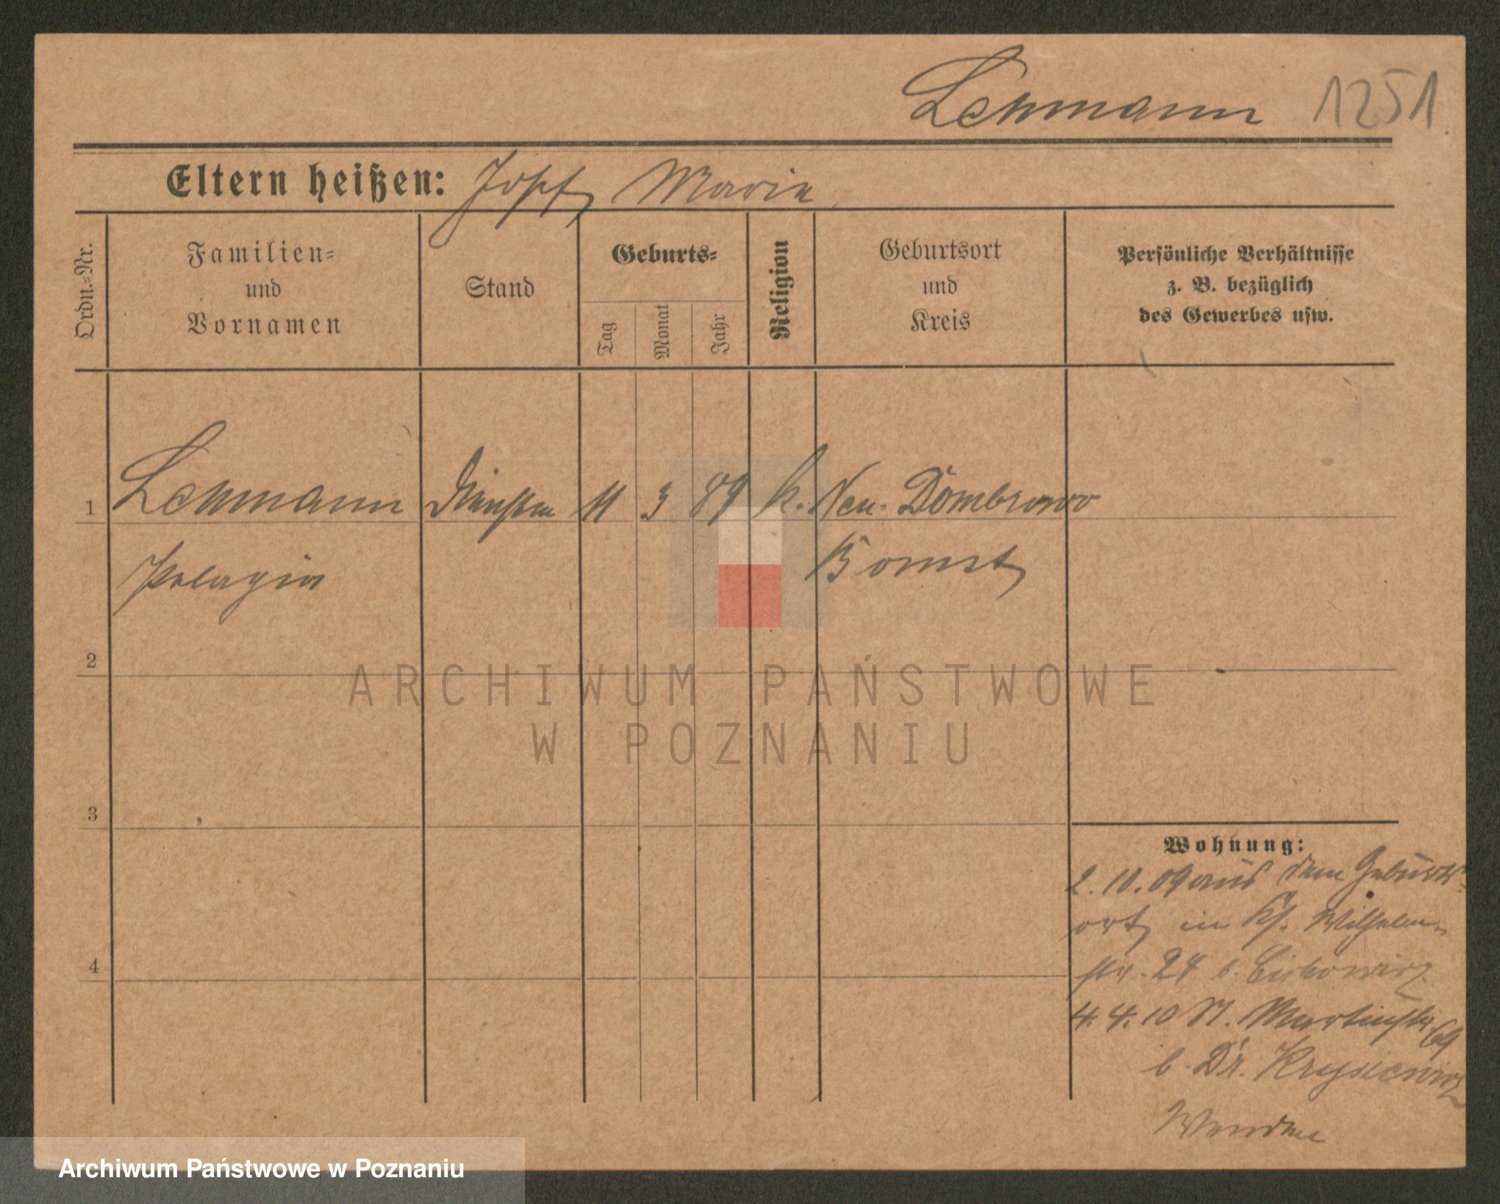 Lehmann 1251
Eltern heißen: Josef, Marie
Ordn.-Nr.
Familien-
und
Vornamen
Stand
Geburts-
Tag
Monat
Jahr
Religion
Geburtsort
und
Kreis
Persönliche Verhältnisse
z. B. bezüglich
des Gewerbes usw.
1 Lehmann 11 3 89 k. Neu-Dombrowo
Pelagia Bomst
2
ARCHIWUM PAŃSTWOWE
W POZNANIU
3
Wohnung:
2. 10. 09 aus dem Geburts-
ort, in Wilhelm-
str. 24 b.
4. 4. 10 St. Martinstr 69
b. Dr.
4
Wenden
Archiwum Państwowe w Poznaniu